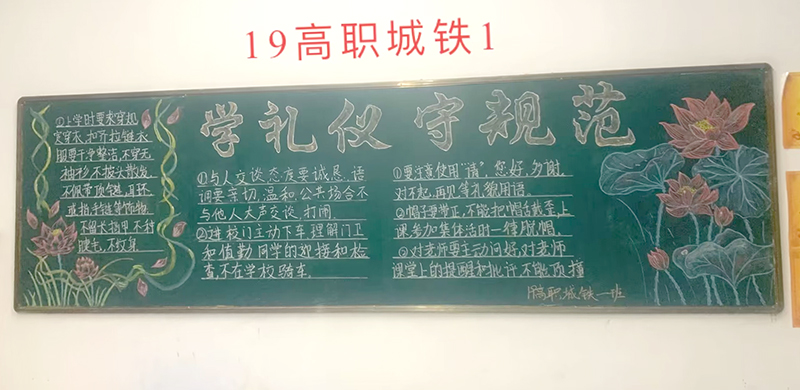 19高职城铁1
学礼仪 守规范
①上学时要衣穿机
实穿衣、扣齐拉链衣
服要干净整洁,不穿无
袖衫、不披头散发,
不佩带项链、耳环、
或指链等饰物。
不留长指甲、不衬
睫毛、不纹身
①与人交谈态度要诚恳、语
调要亲切、温和,公共场合不
与他人大声交谈、打闹
②进校门主动下车,理解门卫
和值勤同学的迎接和检
查,不在学校骑车.
①要注意使用“请”,您好,多谢,
对不起,再见等礼貌用语
②帽子要带正,不能把帽舌截歪,上
课参加集体活时一律脱帽.
③对老师要主动问好,对老师
课堂上的提醒和批评不能顶撞
高职城铁一班